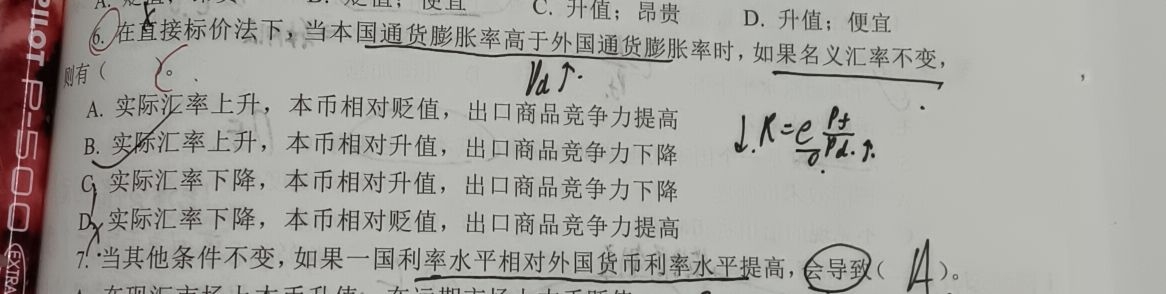 C. 升值；昂贵 D. 升值；便宜
6. 在直接标价法下，当本国通货膨胀率高于外国通货膨胀率时，如果名义汇率不变，
则有（ ）。
Pd↑.
A. 实际汇率上升，本币相对贬值，出口商品竞争力提高
B. 实际汇率上升，本币相对升值，出口商品竞争力下降
C. 实际汇率下降，本币相对升值，出口商品竞争力下降
D. 实际汇率下降，本币相对贬值，出口商品竞争力提高
↓. R = e Pf / Pd. ↑.
7. 当其他条件不变，如果一国利率水平相对外国货币利率水平提高，会导致（ A ）。
PILOT P-500 (EXTRA